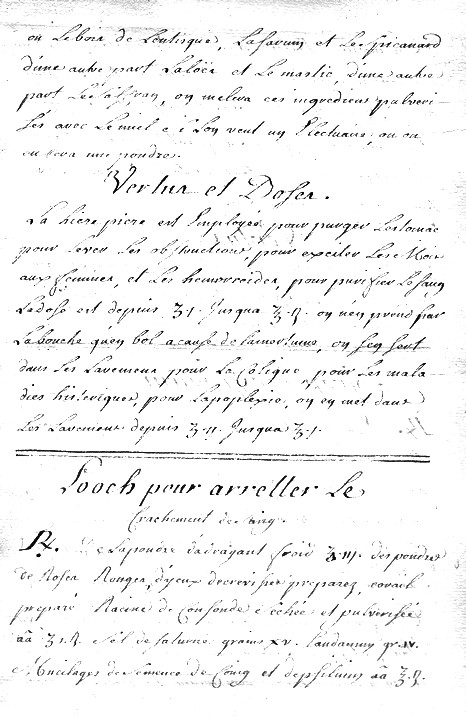 ou Lebois de Lentisque, Lasarum et Le spicanard
d'une autre part Laloës et Le mastic, d'une autre
part Le saffran, on melera ces ingrediens pulveri-
sés avec Le miel si Lon veut un Electuaire, ou on
en fera une poudre.
Vertus et Doses.
La hiere picre est Employée, pour purger Lestomac
pour Lever Les obstructions, pour exciter Les Mois
aux femmes, et Les hemorroïdes, pour purifier Le sang
La dose est depuis ʒ.i. Jusqua ʒ.ß. on nen prend par
La bouche quen bol a cause de Lamertume, on sen sert
dans Les Lavemens pour La Colique pour Les mala-
dies histeriques, pour Lapoplexie, on en met dans
Les Lavemens depuis ʒ.ii. Jusqua ʒ.i.
Looch pour arrester Le
Crachement de sang.
℞. De La poudre dadragant froid ʒ.iii. des poudres
de Roses Rouges, d'yeux decrevisses preparez, corail
preparé Racine de Consoude sechée et pulverisée
aā ʒ.i.ß. sel de saturne grains xv. Laudanum gr. iv.
Mucilages de semence de Coing et de psilium aā ʒ.ß.